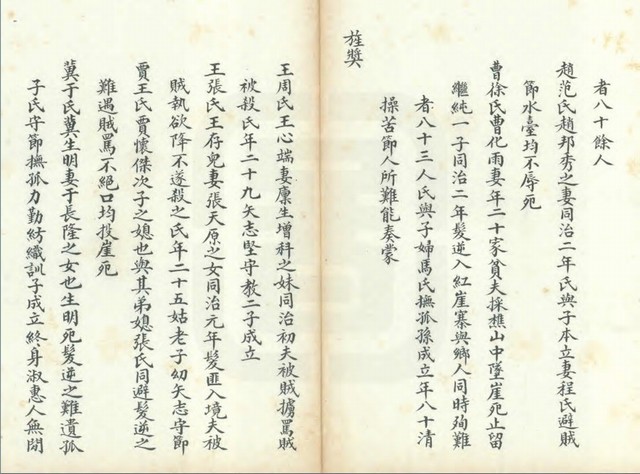 者八十餘人
趙范氏趙邦秀之妻同治二年氏與子本立妻程氏避賊
節水臺均不辱死
曹徐氏曹化雨妻年二十家貧夫採樵山中墜崖死止留
繼純一子同治二年髮逆入紅崖寨與鄉人同時殉難
者八十三人氏與子婦馬氏撫孤孫成立年八十清
操苦節人所難能奏蒙
旌獎
王周氏王心端妻廩生增科之妹同治初夫被賊擄罵賊
被殺氏年二十九矢志堅守教二子成立
王張氏王存兒妻張天原之女同治元年髮匪入境夫被
賊執欲降不遂殺之氏年二十五姑老子幼矢志守節
賈王氏賈懷傑次子之媳也與其弟媳張氏同避髮逆之
難遇賊罵不絕口均投崖死
冀于氏冀生明妻于長隆之女也生明死髮逆之難遺孤
子氏守節撫孤力勤紡織訓子成立終身淑惠人無閒